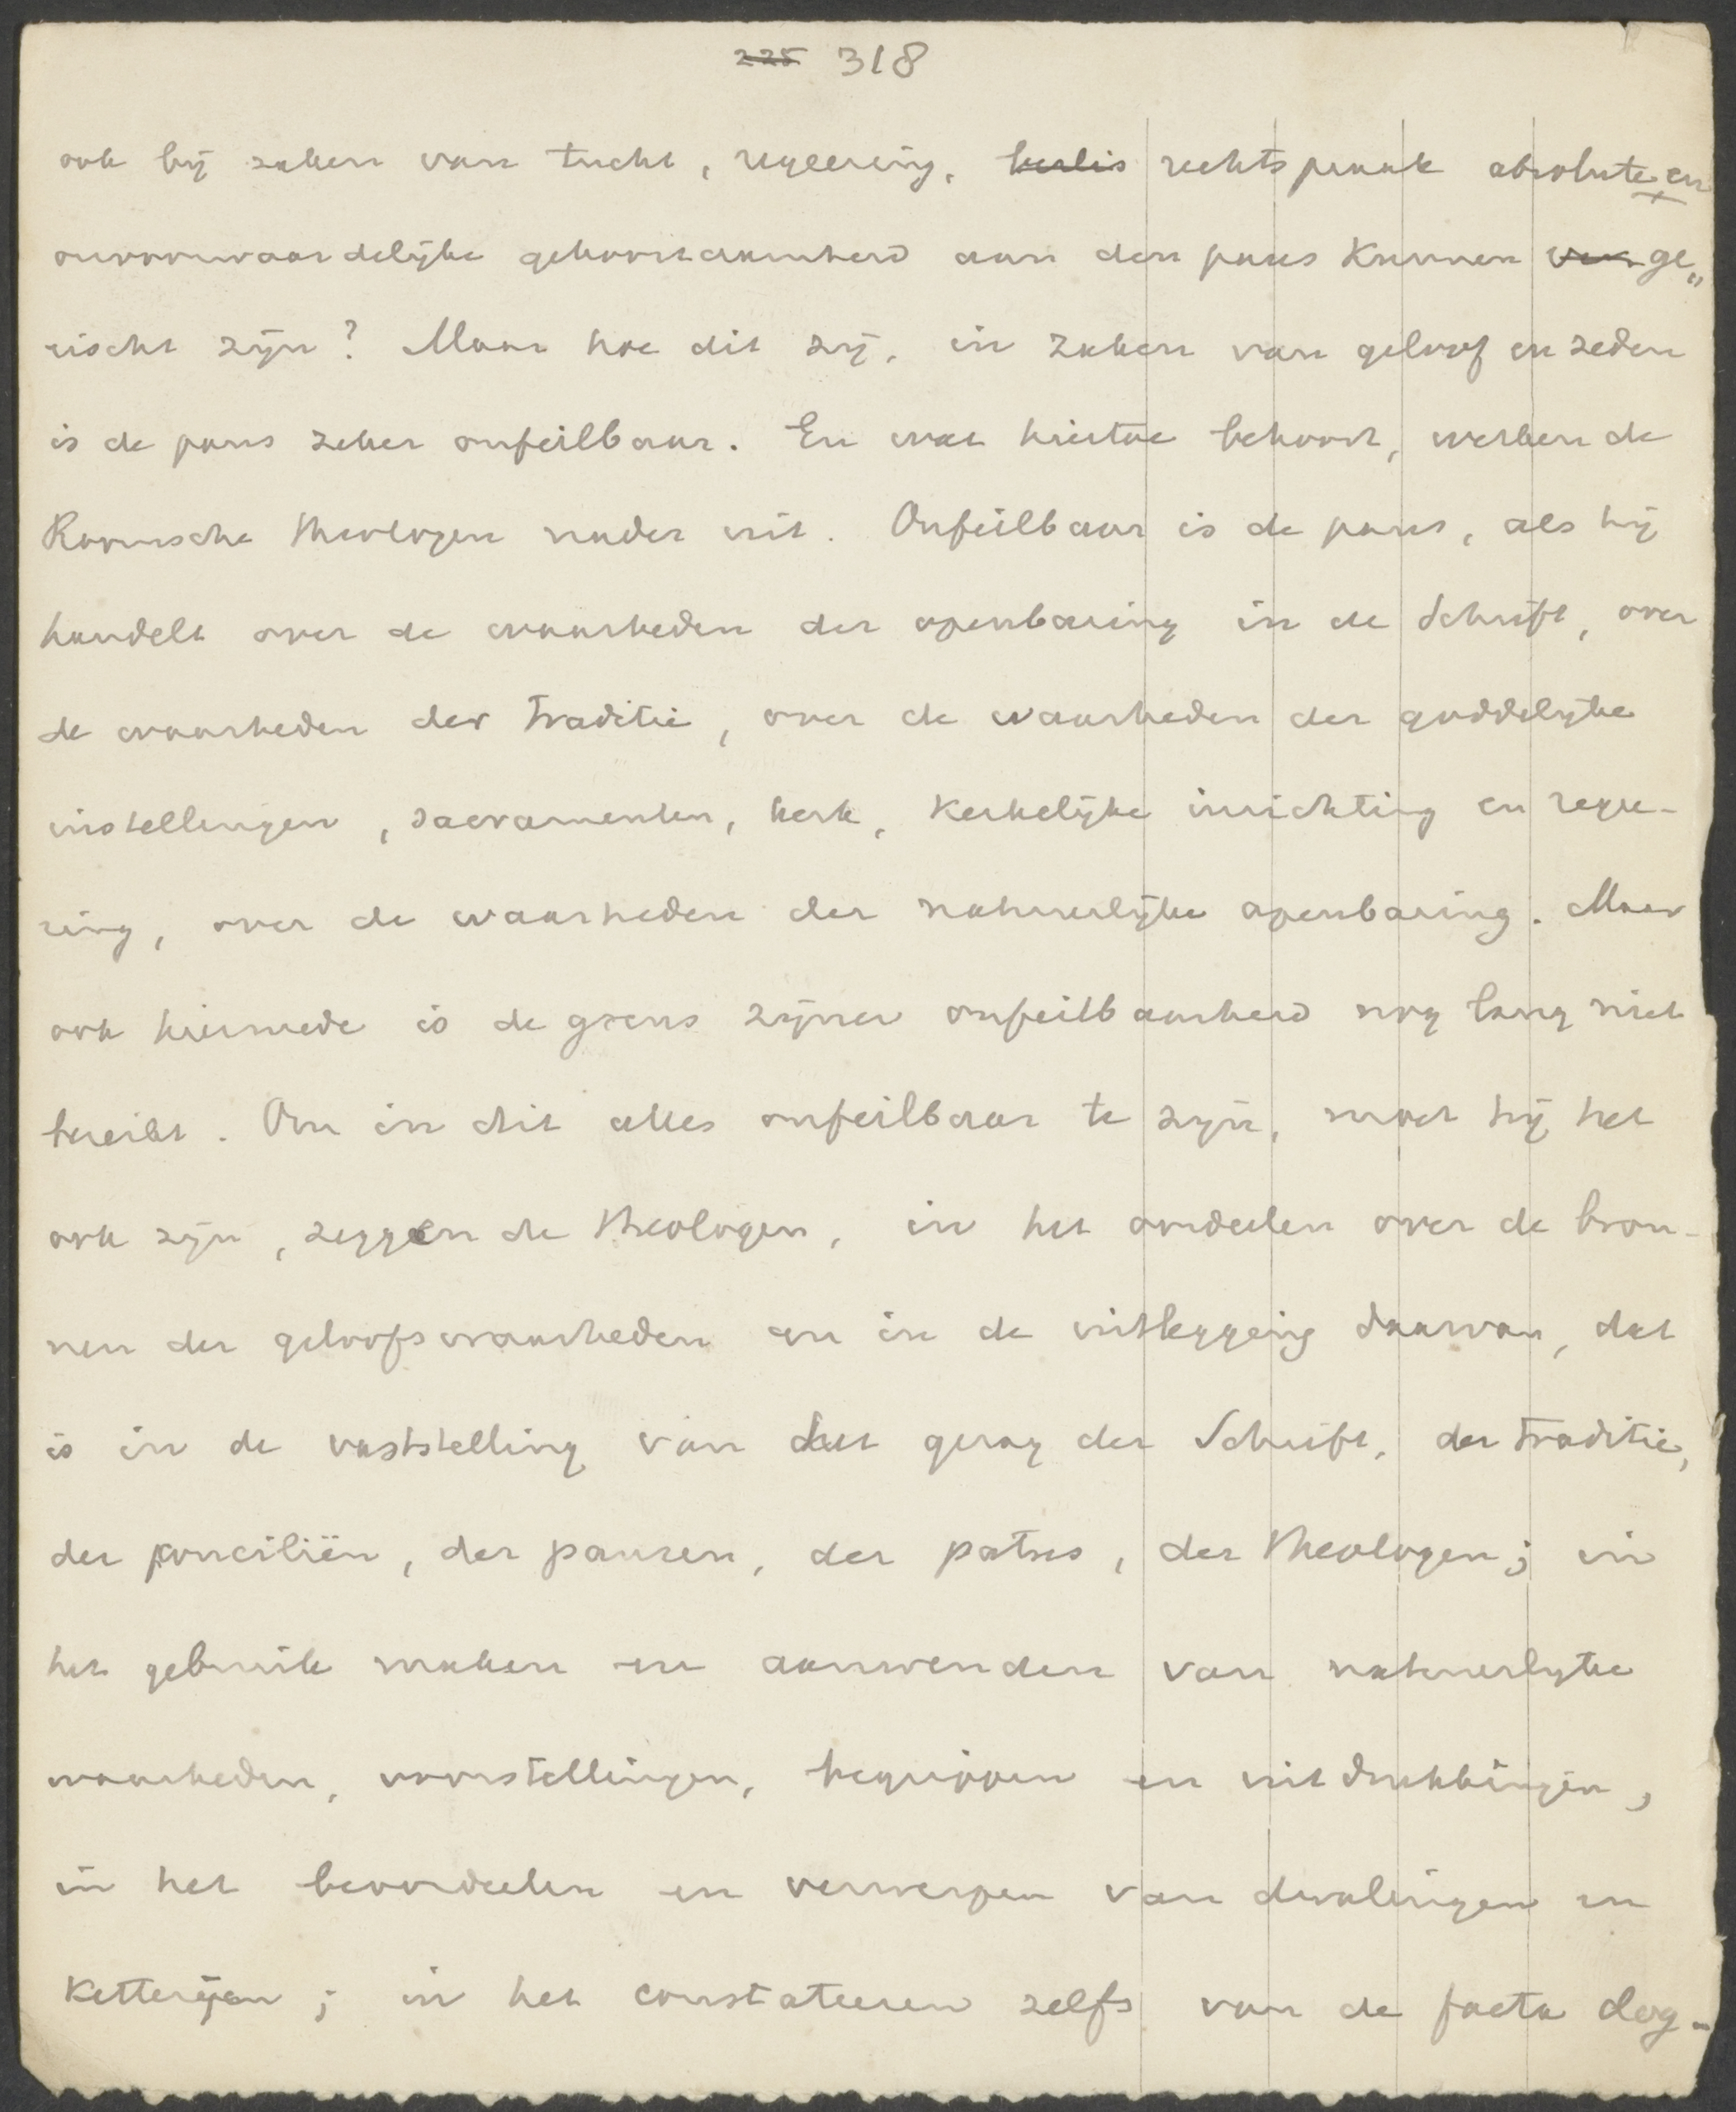 225 318
ook bij zaken van tucht, regeering, beslis rechtspraak absolute en
onvoorwaardelijke gehoorzaamheid aan den paus kunnen ver ge„
eischt zijn? Maar hoe dit zij, in zaken van geloof en zeden
is de paus zeker onfeilbaar. En wat hiertoe behoort, werken de
Roomsche theologen nader uit. Onfeilbaar is de paus, als hij
handelt over de waarheden der openbaring in de Schrift, over
de waarheden der traditie, over de waarheden der goddelijke
instellingen, sacramenten, kerk, kerkelijke inrichting en regee-
ring, over de waarheden der natuurlijke openbaring. Maar
ook hiermede is de grens zijner onfeilbaarheid nog lang niet
bereikt. Om in dit alles onfeilbaar te zijn, moet hij het
ook zijn, zeggen de theologen, in het oordeelen over de bron-
nen der geloofswaarheden en in de uitlegging daarvan, dat
is in de vaststelling van het gezag der Schrift, der traditie,
der conciliën, der pausen, der patres, der theologen; in
het gebruik maken en aanwenden van natuurlijke
waarheden, voorstellingen, begrippen en uitdrukkingen,
in het beoordeelen en verwerpen van dwalingen en
ketterijen; in het constateeren zelfs van de facta dog-